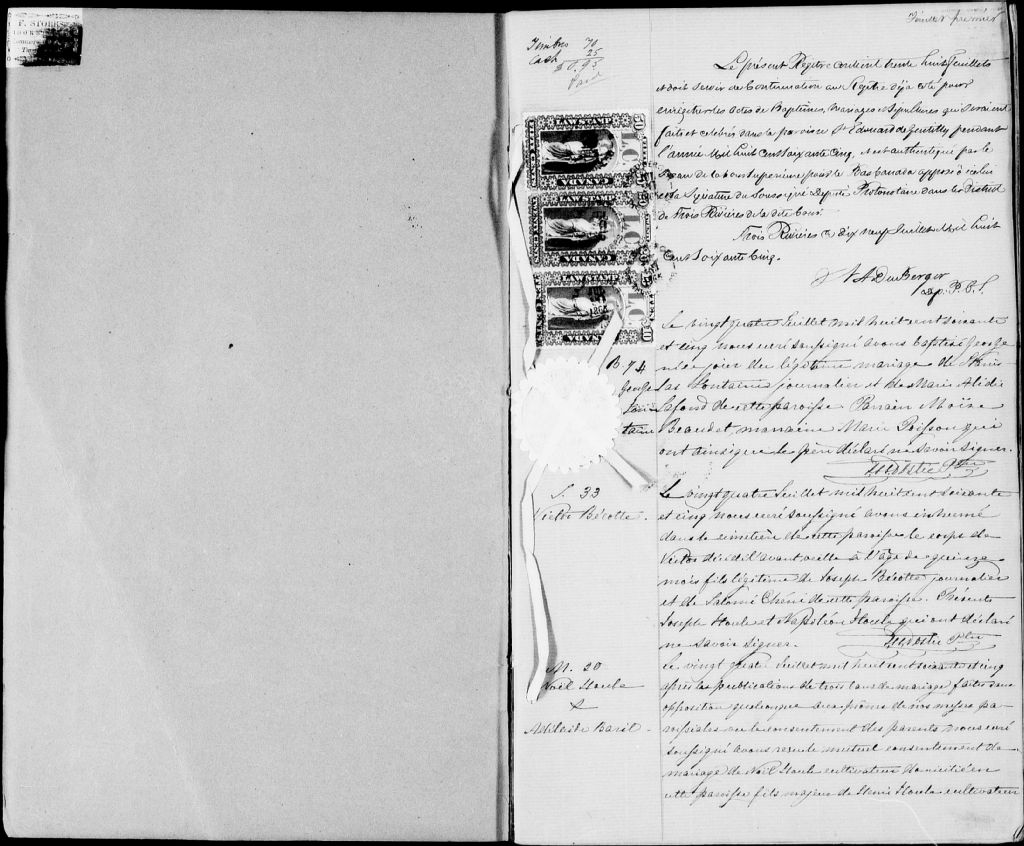 F. STOBBS
Feuillet premier
Timbres 70
Cash 25
$0.95
Paid
LAW STAMP
CANADA
LAW STAMP
CANADA
LAW STAMP
Le présent Registre contient trente huit feuillets
et doit servir de Continuation au Registre déjà coté pour
enregistrer les Actes de Baptêmes, Mariages et Sépultures qui seraient
faits et célébrés dans la paroisse St Edouard de Gentilly pendant
l'année Mil huit Cent Soixante Cinq, et est authentiqué par le
Sceau de la Cour Supérieure pour le Bas Canada apposé à celui
et la Signature du Soussigné Député Protonotaire dans le District
de Trois Rivières de la dite Cour.
Trois Rivières ce Dix neuf Juillet Mil huit
Cent Soixante Cinq.
Dep. P.C.S.
B. 74
George
Fon-
taine
Le vingt quatre Juillet mil huit cent soixante
et cinq nous curé soussigné avons baptisé George
né ce jour du légitime mariage de
Fontaine journalier et de Marie
Lafond de cette paroisse Parrain Moïse
Beaudet, marraine Marie Poisson qui
ont ainsi que le père déclaré ne savoir signer.
Ptre
S. 33
Victor Bécotte.
Le vingt quatre Juillet mil huit cent soixante
et cinq nous curé soussigné avons inhumé
dans le cimetière de cette paroisse le corps de
Victor décédé l'avant veille à l'âge de quinze
mois fils légitime de Joseph Bécotte journalier
et de Salomé Chéné de cette paroisse. Présents
Joseph Houle et Napoléon Houle qui ont déclaré
ne savoir signer.
Ptre
M. 20
Noël Houle
&
Adélaïde Baril.
Le vingt quatre Juillet mil huit cent soixante et cinq
après les publications de trois bans de mariage faites sans
opposition quelconque aux prônes de nos messes pa-
roissiales vu le consentement des parents nous curé
soussigné avons reçu le mutuel consentement de
mariage de Noël Houle cultivateur domicilié en
cette paroisse fils majeur de Henri Houle cultivateur